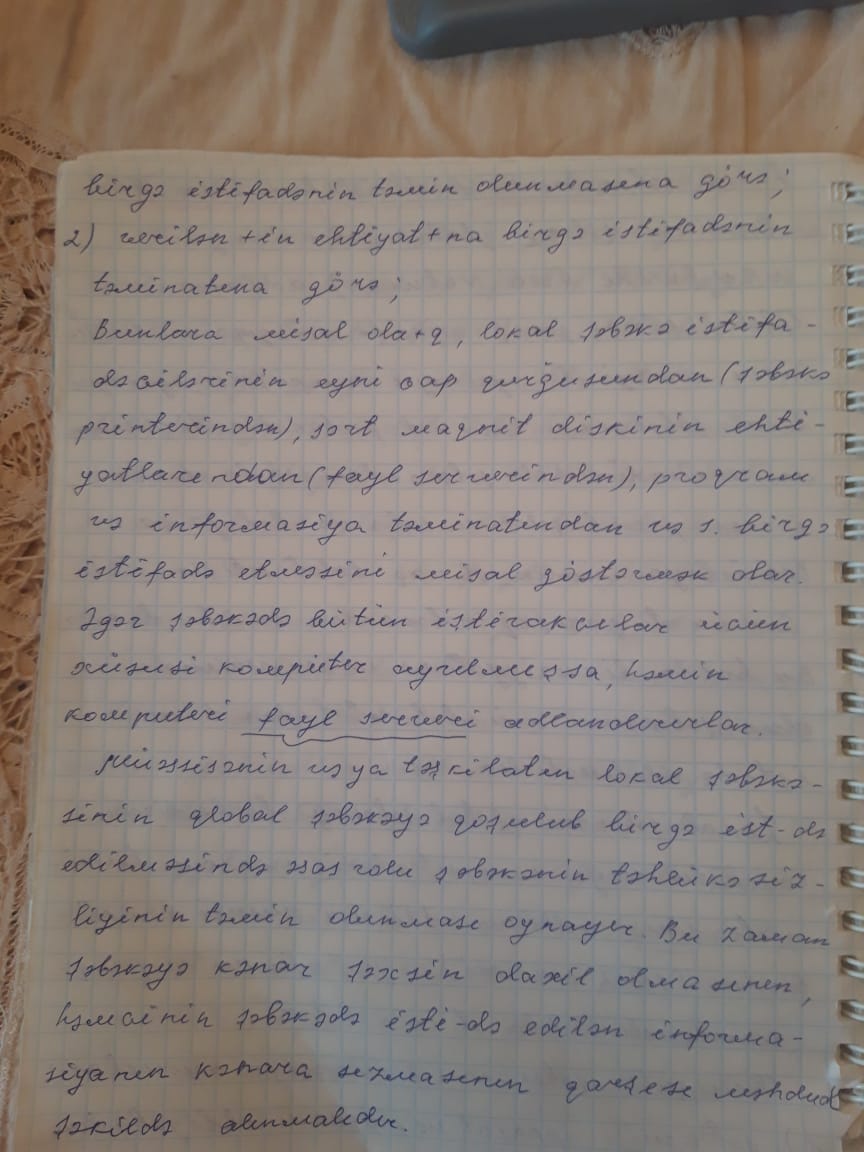 birgə istifadənin təmin olunmasına görə;
2) verilən+in ehtiyat+na birgə istifadənin
təminatına görə;
Bunlara misal ola+q, lokal şəbəkə istifa-
dəçilərinin eyni çap qurğusundan (şəbəkə
printerindən), sərt maqnit diskinin ehti-
yatlarından (fayl serverindən), proqram
və informasiya təminatından və s. birgə
istifadə etməsini misal göstərmək olar.
Əgər şəbəkədə bütün iştirakçılar üçün
xüsusi kompüter ayrılmışsa, həmin
kompüteri fayl serveri adlandırırlar.
Müəssisənin və ya təşkilatın lokal şəbəkə-
sinin global şəbəkəyə qoşulub birgə ist-də
edilməsində əsas rolu şəbəkənin təhlükəsiz-
liyinin təmin olunması oynayır. Bu zaman
şəbəkəyə kənar şəxsin daxil olmasının,
həmçinin şəbəkədə isti-də edilən informa-
siyanın kənara sızmasının qarşısı məhdud
şəkildə alınmalıdır.